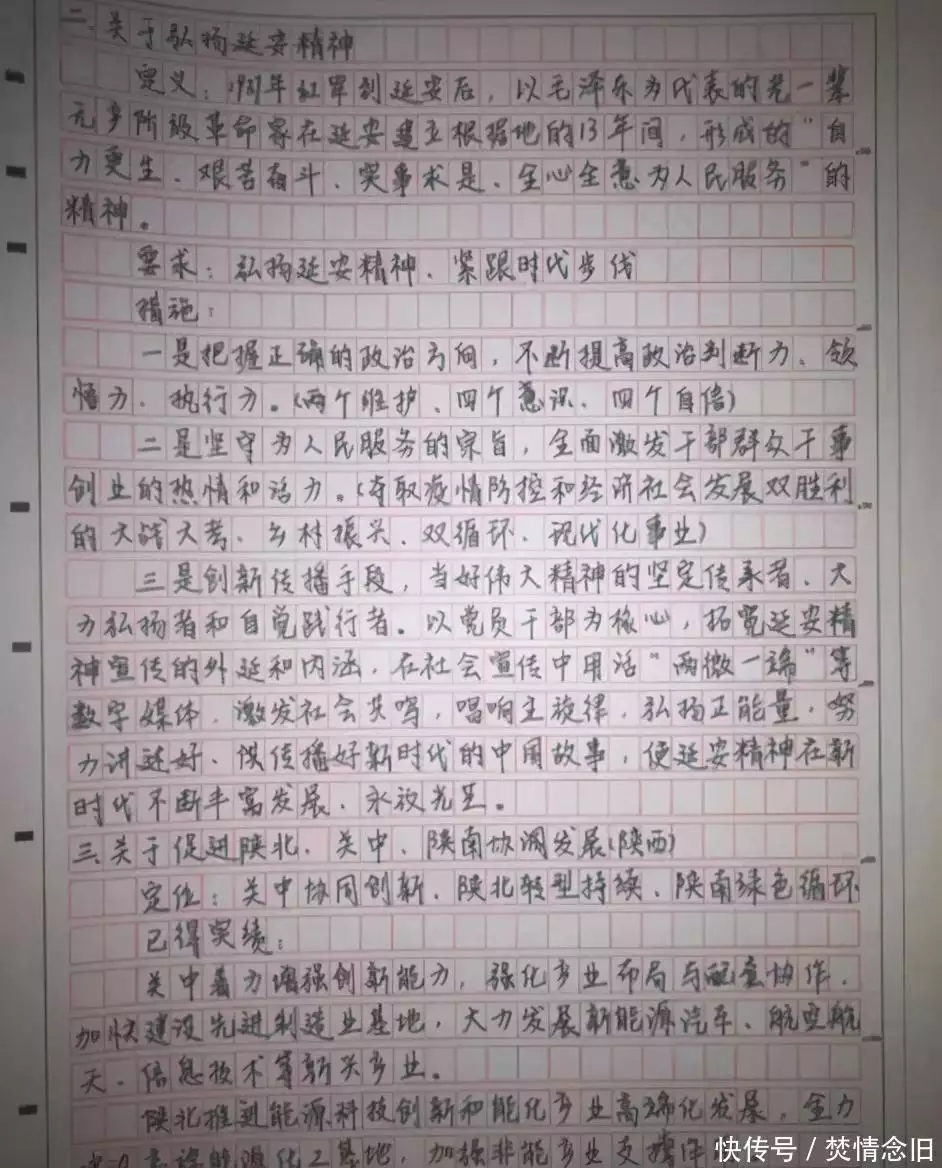 二、关于弘扬延安精神
定义：1937年红军到延安后，以毛泽东为代表的老一辈
无产阶级革命家在延安建立根据地的13年间，形成的“自
力更生、艰苦奋斗、实事求是、全心全意为人民服务”的
精神。
要求：弘扬延安精神、紧跟时代步伐
措施：
一是把握正确的政治方向，不断提高政治判断力、领
悟力、执行力。（两个维护、四个意识、四个自信）
二是坚守为人民服务的宗旨，全面激发干部群众干事
创业的热情和活力。（夺取疫情防控和经济社会发展双胜利
的大战大考、乡村振兴、双循环、现代化事业）
三是创新传播手段，当好伟大精神的坚定传承者、大
力弘扬者和自觉践行者。以党员干部为核心，拓宽延安精
神宣传的外延和内涵，在社会宣传中用活“两微一端”等
数字媒体，激发社会共鸣，唱响主旋律，弘扬正能量，努
力讲述好、传播好新时代的中国故事，使延安精神在新
时代不断丰富发展、永放光芒。
三、关于促进陕北、关中、陕南协调发展（陕西）
定位：关中协同创新、陕北转型持续、陕南绿色循环
已得实绩：
关中着力增强创新能力，强化产业布局与配套协作，
加快建设先进制造业基地，大力发展新能源汽车、航空航
天、信息技术等新兴产业。
陕北推进能源科技创新和能化产业高端化发展，全力
高端能源化工基地，加强非能产业支撑
快传号／焚情念旧